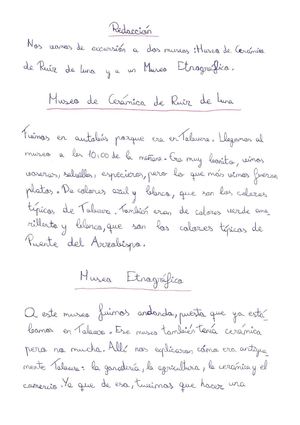 Redacción
Nos vamos de excursión a dos museos: Museo de Cerámica
de Ruiz de Luna y a un Museo Etnográfico.
Museo de Cerámica de Ruiz de Luna
Fuimos en autobús porque era en Talavera. Llegamos al
museo a las 10:00 de la mañana. Era muy bonito, vimos
especieros, pero lo que más vimos fueron
platos. De colores azul y blanco, que son los colores
típicos de Talavera. También eran de colores verde ama
rillento y blanco, que son los colores típicos de
Puente del Arzobispo.
Museo Etnográfico
A este museo fuimos andando, puesto que ya está
bamos en Talavera. Ese museo también tenía cerámica
pero no mucha. Allí nos explicaron cómo era antigua
mente Talavera: la ganadería, la agricultura, la cerámica y el
comercio. Ya que de eso, tuvimos que hacer una